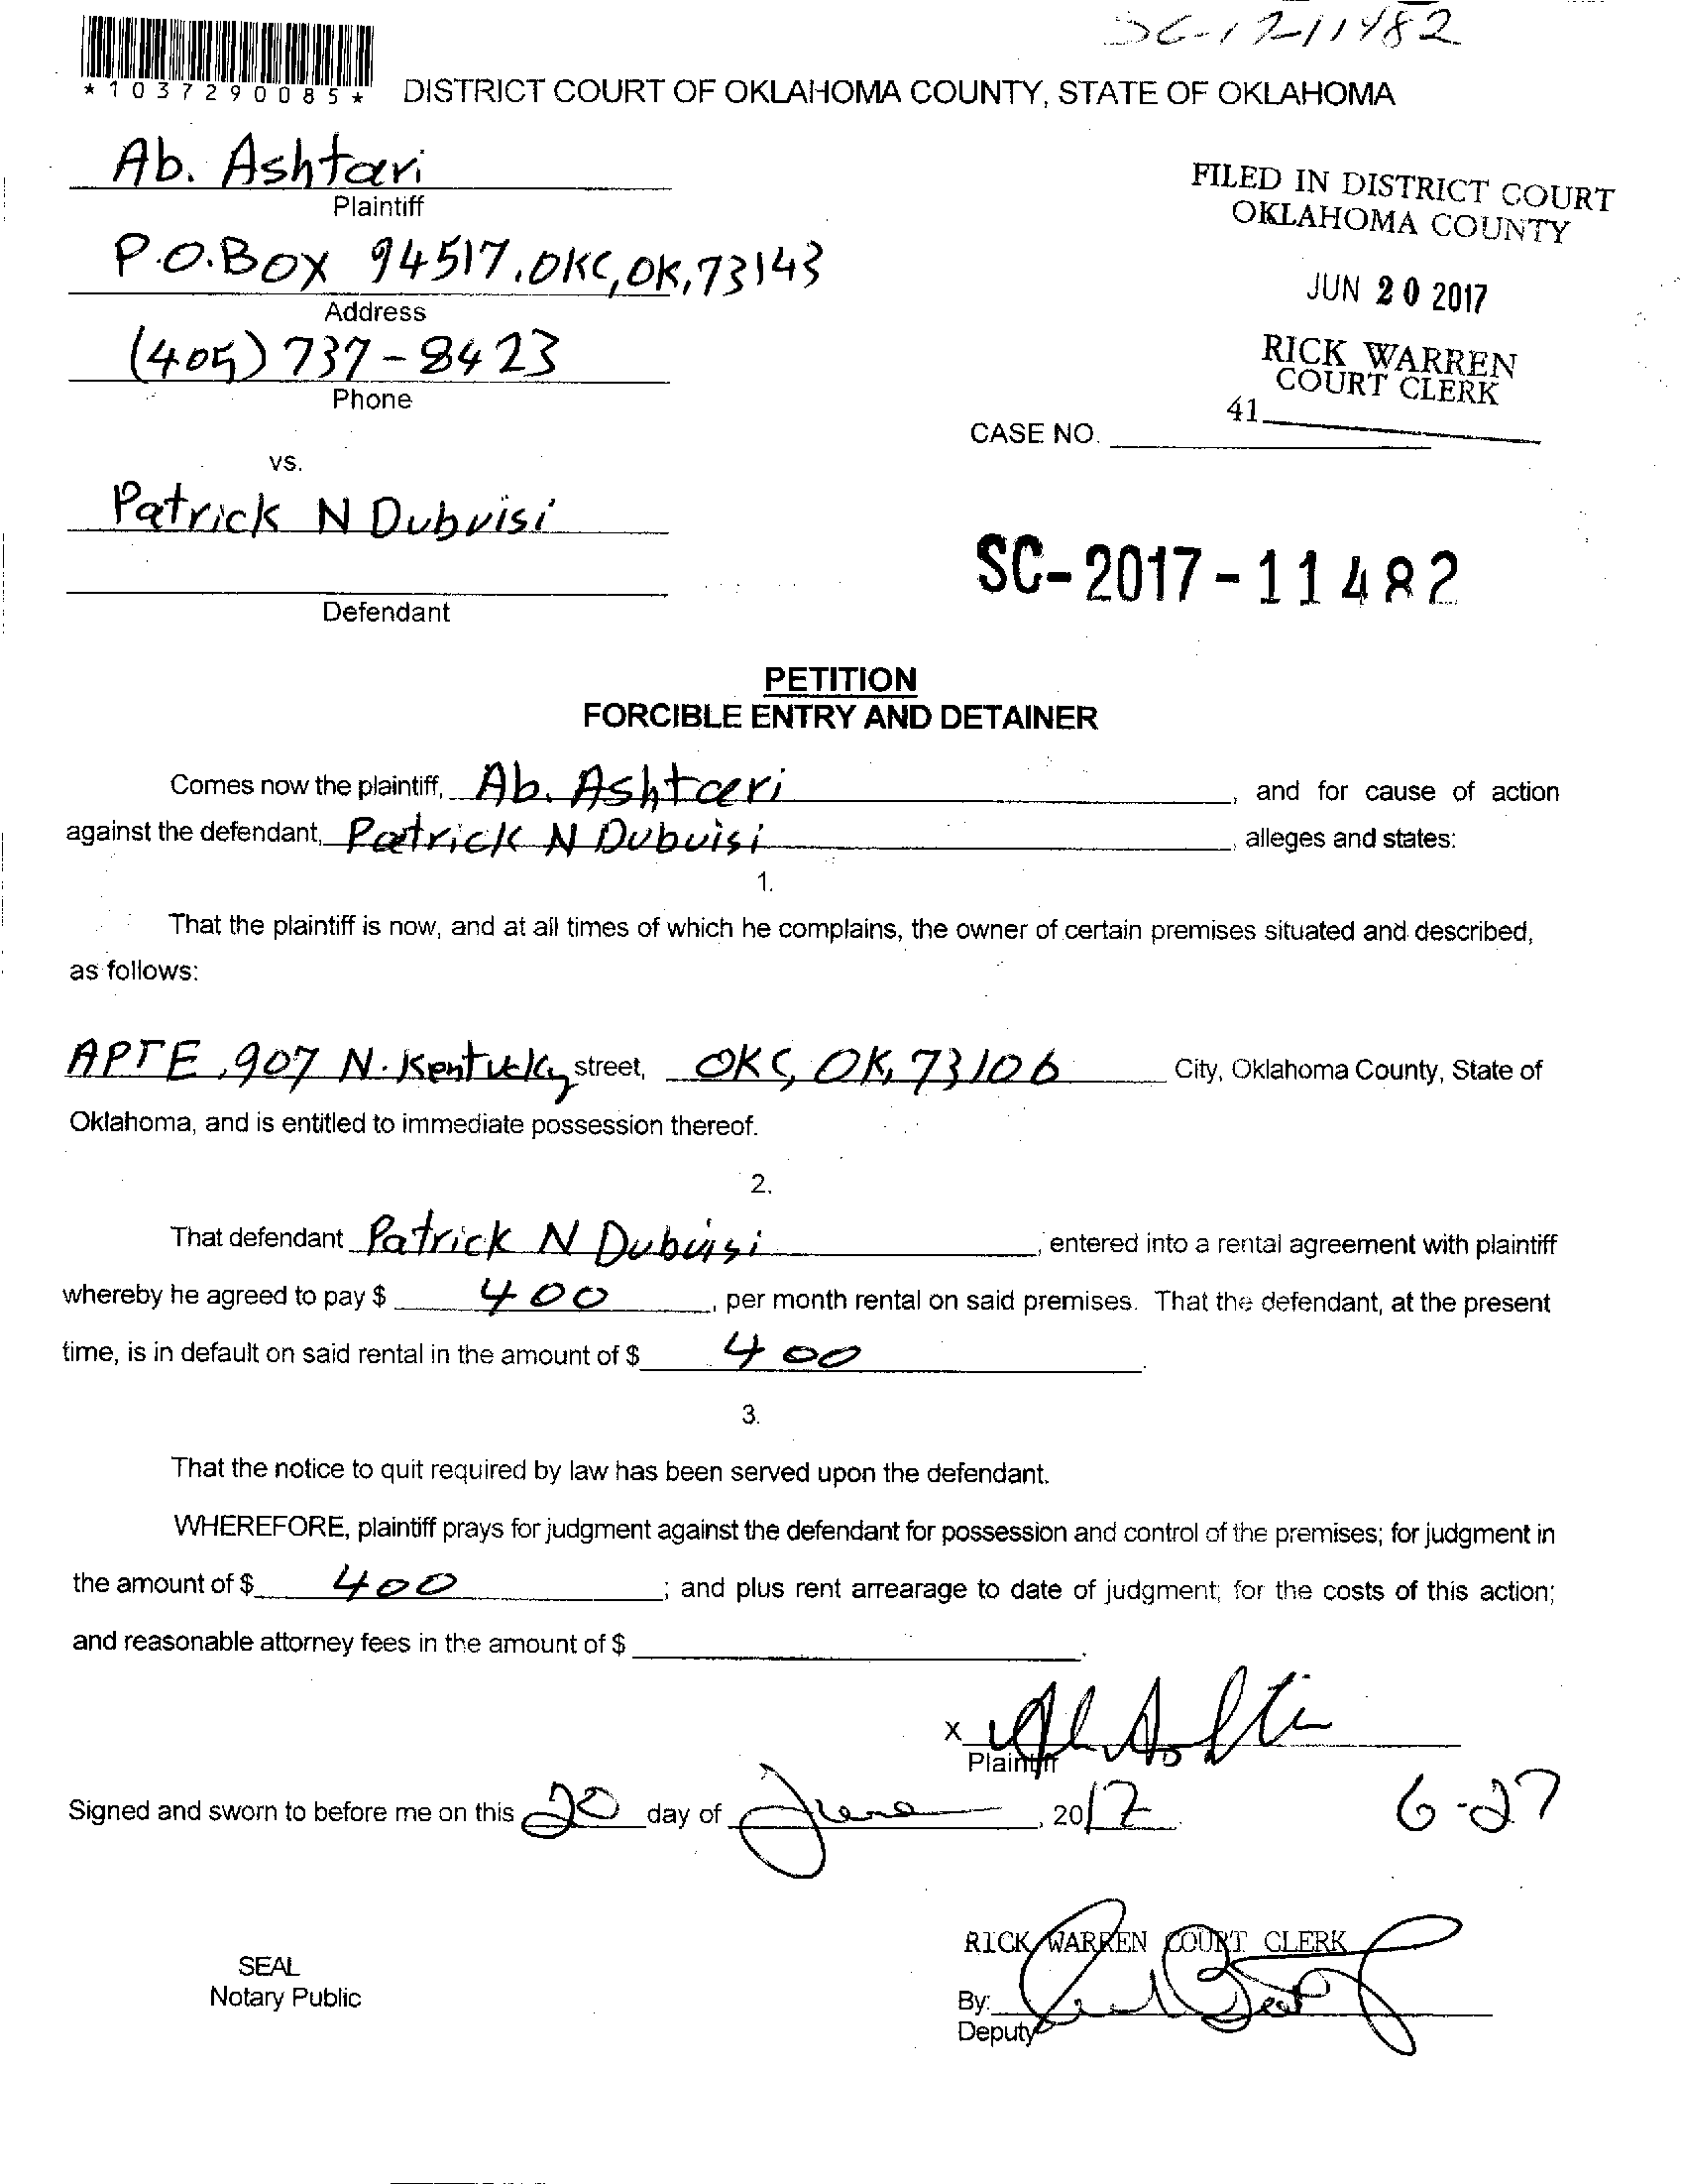 SC-17-11482
*1037290085*
DISTRICT COURT OF OKLAHOMA COUNTY, STATE OF OKLAHOMA
Ab. Ashtari
Plaintiff
FILED IN DISTRICT COURT
OKLAHOMA COUNTY
P.O.Box 94517, OKC, OK, 73143
Address
JUN 20 2017
(405) 737-8423
Phone
RICK WARREN
COURT CLERK
41
CASE NO.
vs.
Patrick N Dubuisi
SC-2017-11482
Defendant
PETITION
FORCIBLE ENTRY AND DETAINER
Comes now the plaintiff, Ab. Ashtari, and for cause of action
against the defendant, Patrick N Dubuisi, alleges and states:
1.
That the plaintiff is now, and at all times of which he complains, the owner of certain premises situated and described,
as follows:
APTE, 907 N. Kentucky street, OKC, OK, 73106 City, Oklahoma County, State of
Oklahoma, and is entitled to immediate possession thereof.
2.
That defendant Patrick N Dubuisi, entered into a rental agreement with plaintiff
whereby he agreed to pay $ 400, per month rental on said premises. That the defendant, at the present
time, is in default on said rental in the amount of $ 400.
3.
That the notice to quit required by law has been served upon the defendant.
WHEREFORE, plaintiff prays for judgment against the defendant for possession and control of the premises; for judgment in
the amount of $ 400; and plus rent arrearage to date of judgment; for the costs of this action;
and reasonable attorney fees in the amount of $ .
X
Plaintiff
Signed and sworn to before me on this 20 day of June, 2017
6-27
RICK WARREN COURT CLERK
SEAL
Notary Public
By:
Deputy